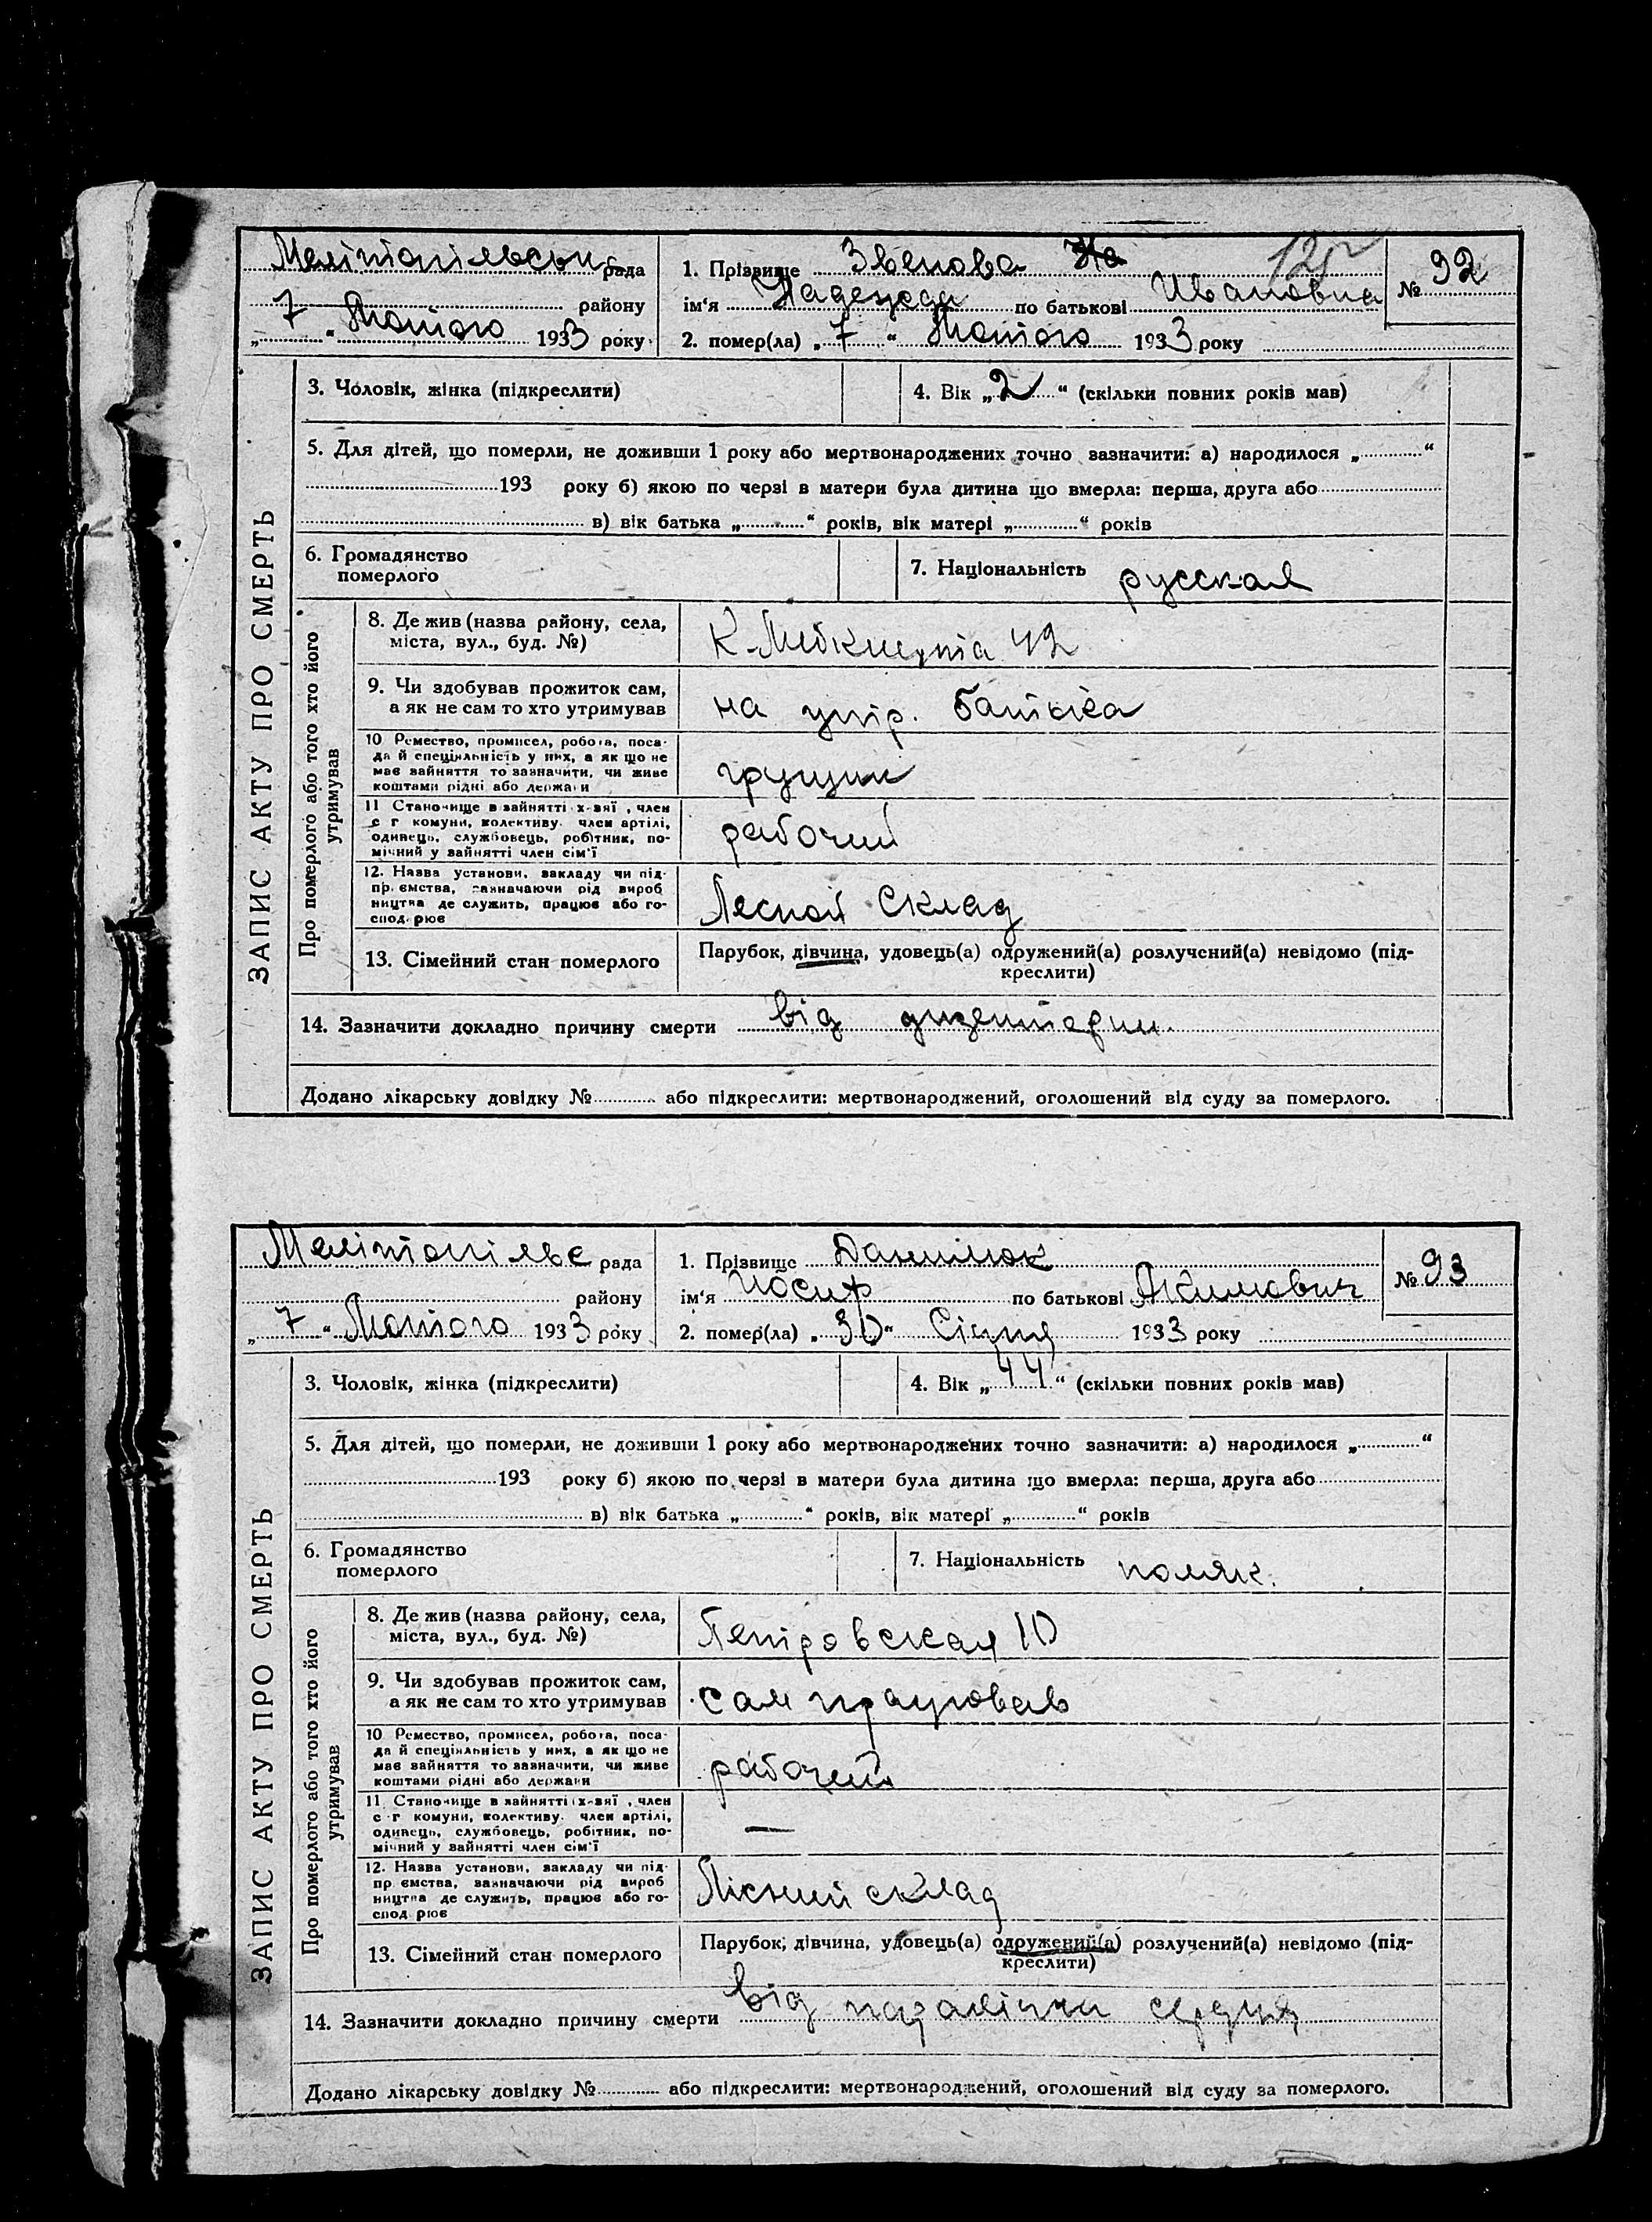 Мелітопільськ рада
району
„ 7 “ Лютого 1933 року
1. Прізвище Звенова
ім‘я Надежда по батькові Ивановна
2. помер(ла) „ 7 “ Лютого 1933 року
№ 92
ЗАПИС АКТУ ПРО СМЕРТЬ
3. Чоловік, жінка (підкреслити)
4. Вік „ 2 “ (скільки повних років мав)
5. Для дітей, що померли, не доживши 1 року або мертвонароджених точно зазначити: а) народилося „ “
193 року б) якою по черзі в матери була дитина що вмерла: перша, друга або
в) вік батька „ “ років, вік матері „ “ років
6. Громадянство
померлого
7. Національність русская
Про померлого або того хто його
утримував
8. Де жив (назва району, села,
міста, вул., буд. №)
42
9. Чи здобував прожиток сам,
а як не сам то хто утримував
на утр. батька
10 Ремество, промисел, робота, поса-
да й спеціяльність у них, а як що не
має зайняття то зазначити, чи живе
коштами рідні або держави
грущик
11 Становище в зайнятті х-вяї , член
с г комуни, колективу. член артілі,
одинець, службовець, робітник, по-
мічний у зайнятті член сім'ї
рабочий
12. Назва установи, закладу чи під-
пр ємства, зазначаючи рід вироб
ництва де служить, працює або го-
спод рює
Лесной Склад
13. Сімейний стан померлого
Парубок, дівчина, удовець(а) одружений(а) розлучений(а) невідомо (під-
креслити)
14. Зазначити докладно причину смерти від дизентерии.
Додано лікарську довідку № або підкреслити: мертвонароджений, оголошений від суду за померлого.
Мелітопільс рада
району
„ 7 “ Лютого 1933 року
1. Прізвище Данилюк
ім‘я Иосиф по батькові Акимович
2. помер(ла) „ 30 “ Січня 1933 року
№ 93
ЗАПИС АКТУ ПРО СМЕРТЬ
3. Чоловік, жінка (підкреслити)
4. Вік „ 44 “ (скільки повних років мав)
5. Для дітей, що померли, не доживши 1 року або мертвонароджених точно зазначити: а) народилося „ “
193 року б) якою по черзі в матери була дитина що вмерла: перша, друга або
в) вік батька „ “ років, вік матері „ “ років
6. Громадянство
померлого
7. Національність поляк.
Про померлого або того хто його
утримував
8. Де жив (назва району, села,
міста, вул., буд. №)
Петровская 10
9. Чи здобував прожиток сам,
а як не сам то хто утримував
сам працював
10 Ремество, промисел, робота, поса-
да й спеціяльність у них, а як що не
має зайняття то зазначити, чи живе
коштами рідні або держави
рабочий
11 Становище в зайнятті х-вяї , член
с г комуни, колективу. член артілі,
одинець, службовець, робітник, по-
мічний у зайнятті член сім'ї
—
12. Назва установи, закладу чи під-
пр ємства, зазначаючи рід вироб
ництва де служить, працює або го-
спод рює
Лісний склад
13. Сімейний стан померлого
Парубок, дівчина, удовець(а) одружений(а) розлучений(а) невідомо (під-
креслити)
14. Зазначити докладно причину смерти від паралічи серця
Додано лікарську довідку № або підкреслити: мертвонароджений, оголошений від суду за померлого.